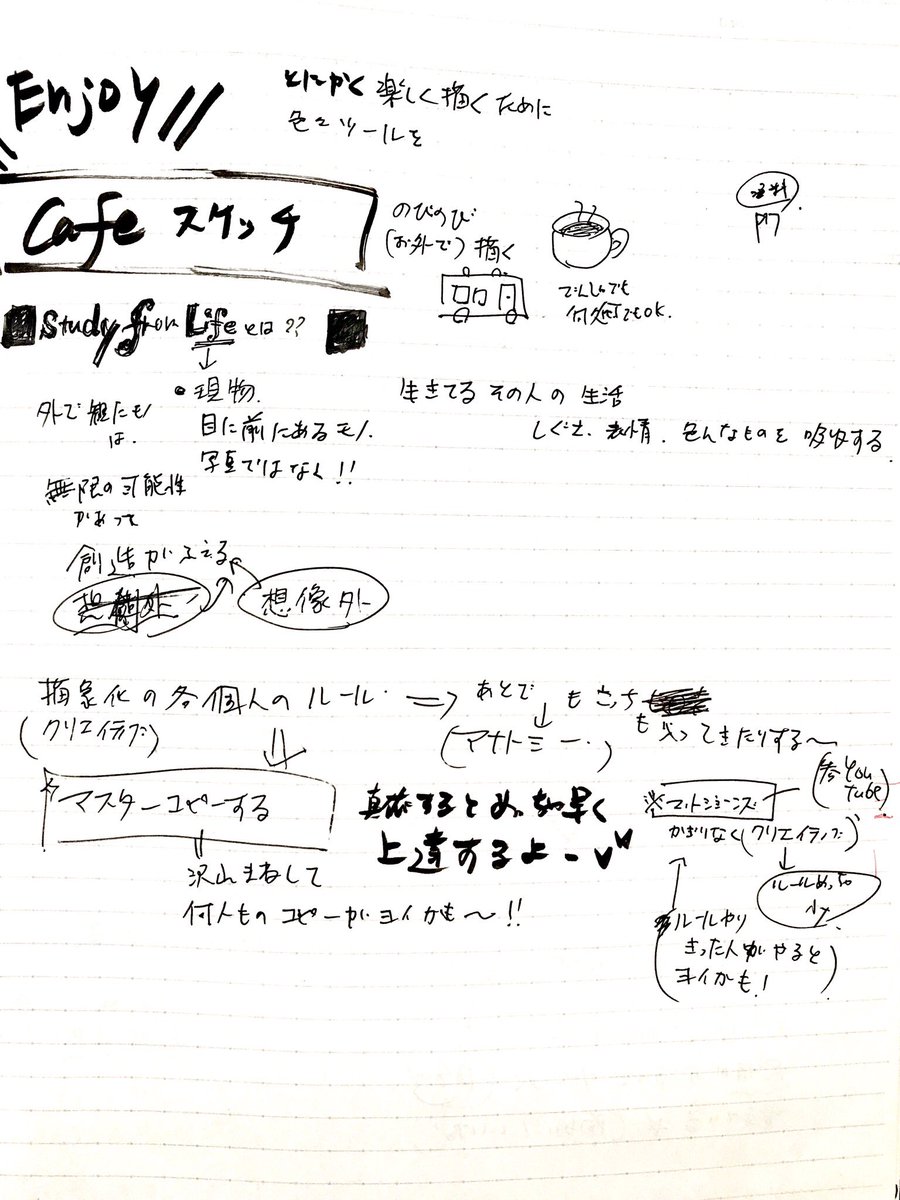 Enjoy//
とにかく楽しく描くために
色々ツールを
Cafe スケッチ
のびのび
(お外で)描く
でんしゃでも
何処でもOK.
資料
P17
Study from Life とは??
・現物.
目に前にあるモノ.
写真ではなく!!
外で観たモノ
は.
無限の可能性
があって
創造がふえる
想像外
生きてる その人の 生活
しぐさ. 表情. 色んなものを 吸収する.
抽象化の各個人のルール.
(クリエイティブ)
⇒ あとで
(アナトミー.)
もこっち
も 入ってきたりする〜
マスターコピーする
真Superするとめっちゃ早く
上達するよー
沢山まねして
何人ものコピーがヨイかも〜!!
※マットジョーンズ
(参 You
tube)
かぎりなく(クリエイティブ)
ルールめっちゃ
少
ルールやり
きった人がやると
ヨイかも!